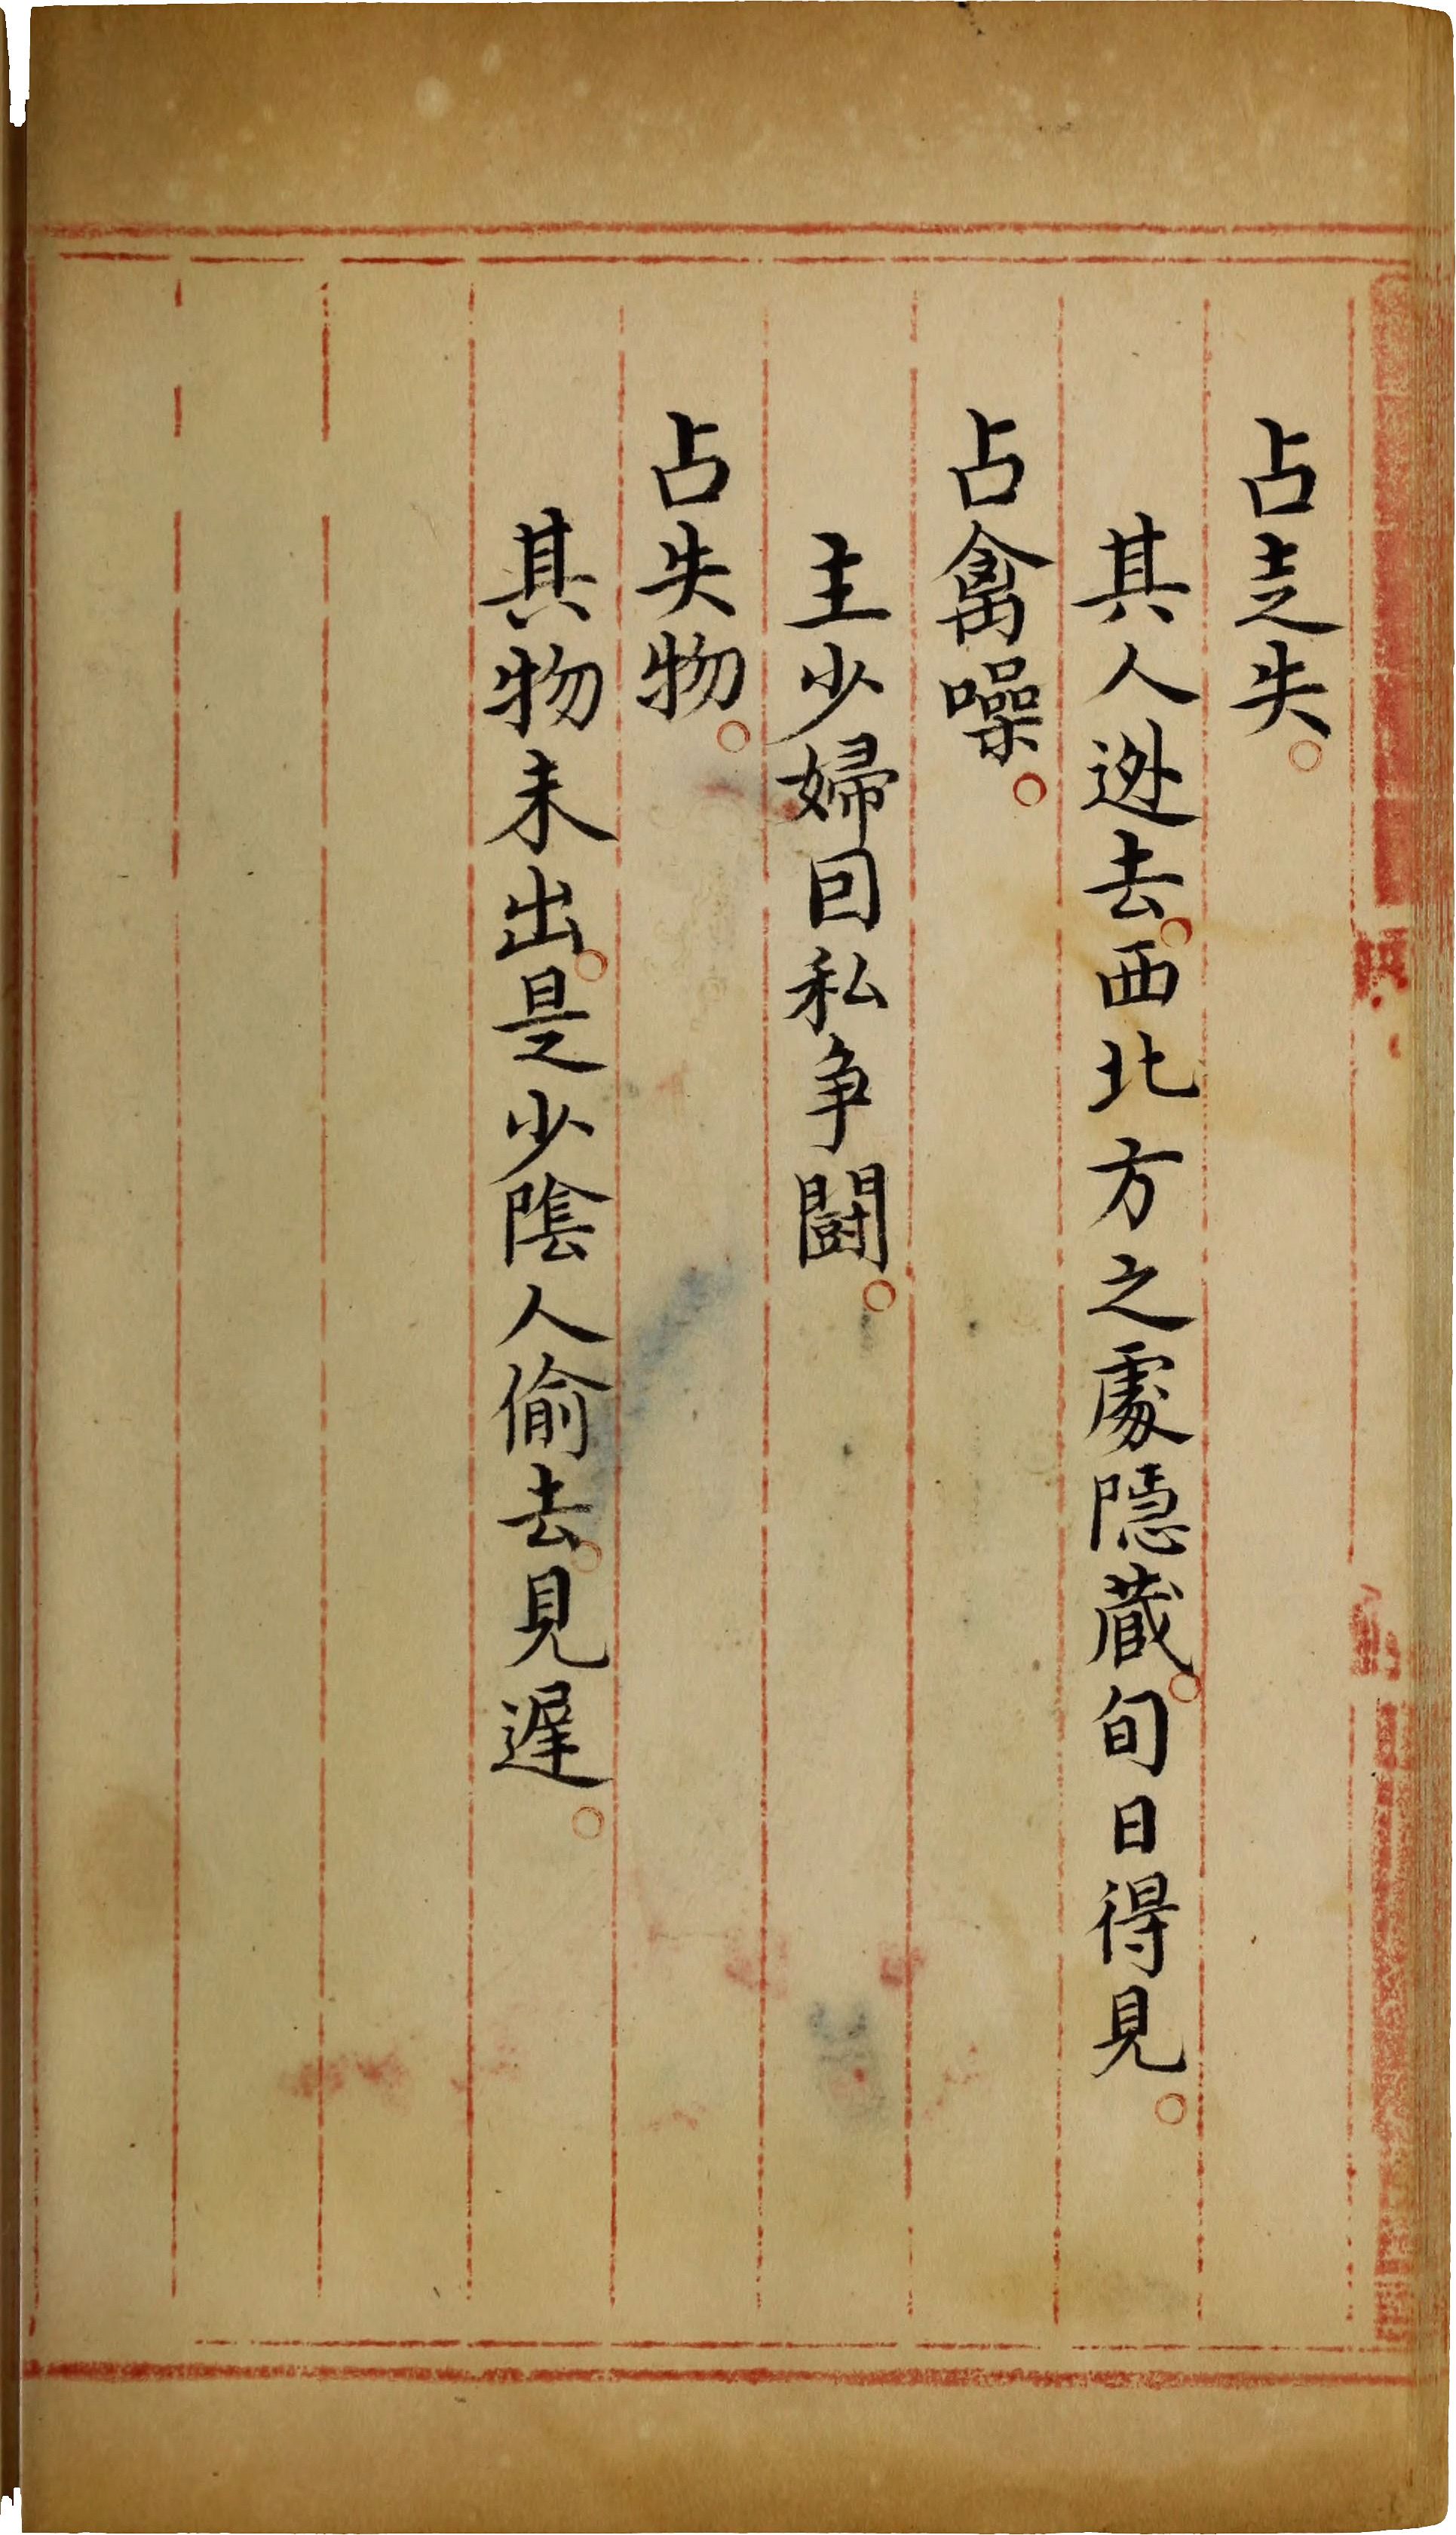 占走失。
其人逃去。西北方之處隱蔵。旬日得見。
占禽噪。
主少婦回私争鬪。
占失物。
其物未出。是少陰人偷去。見遲。